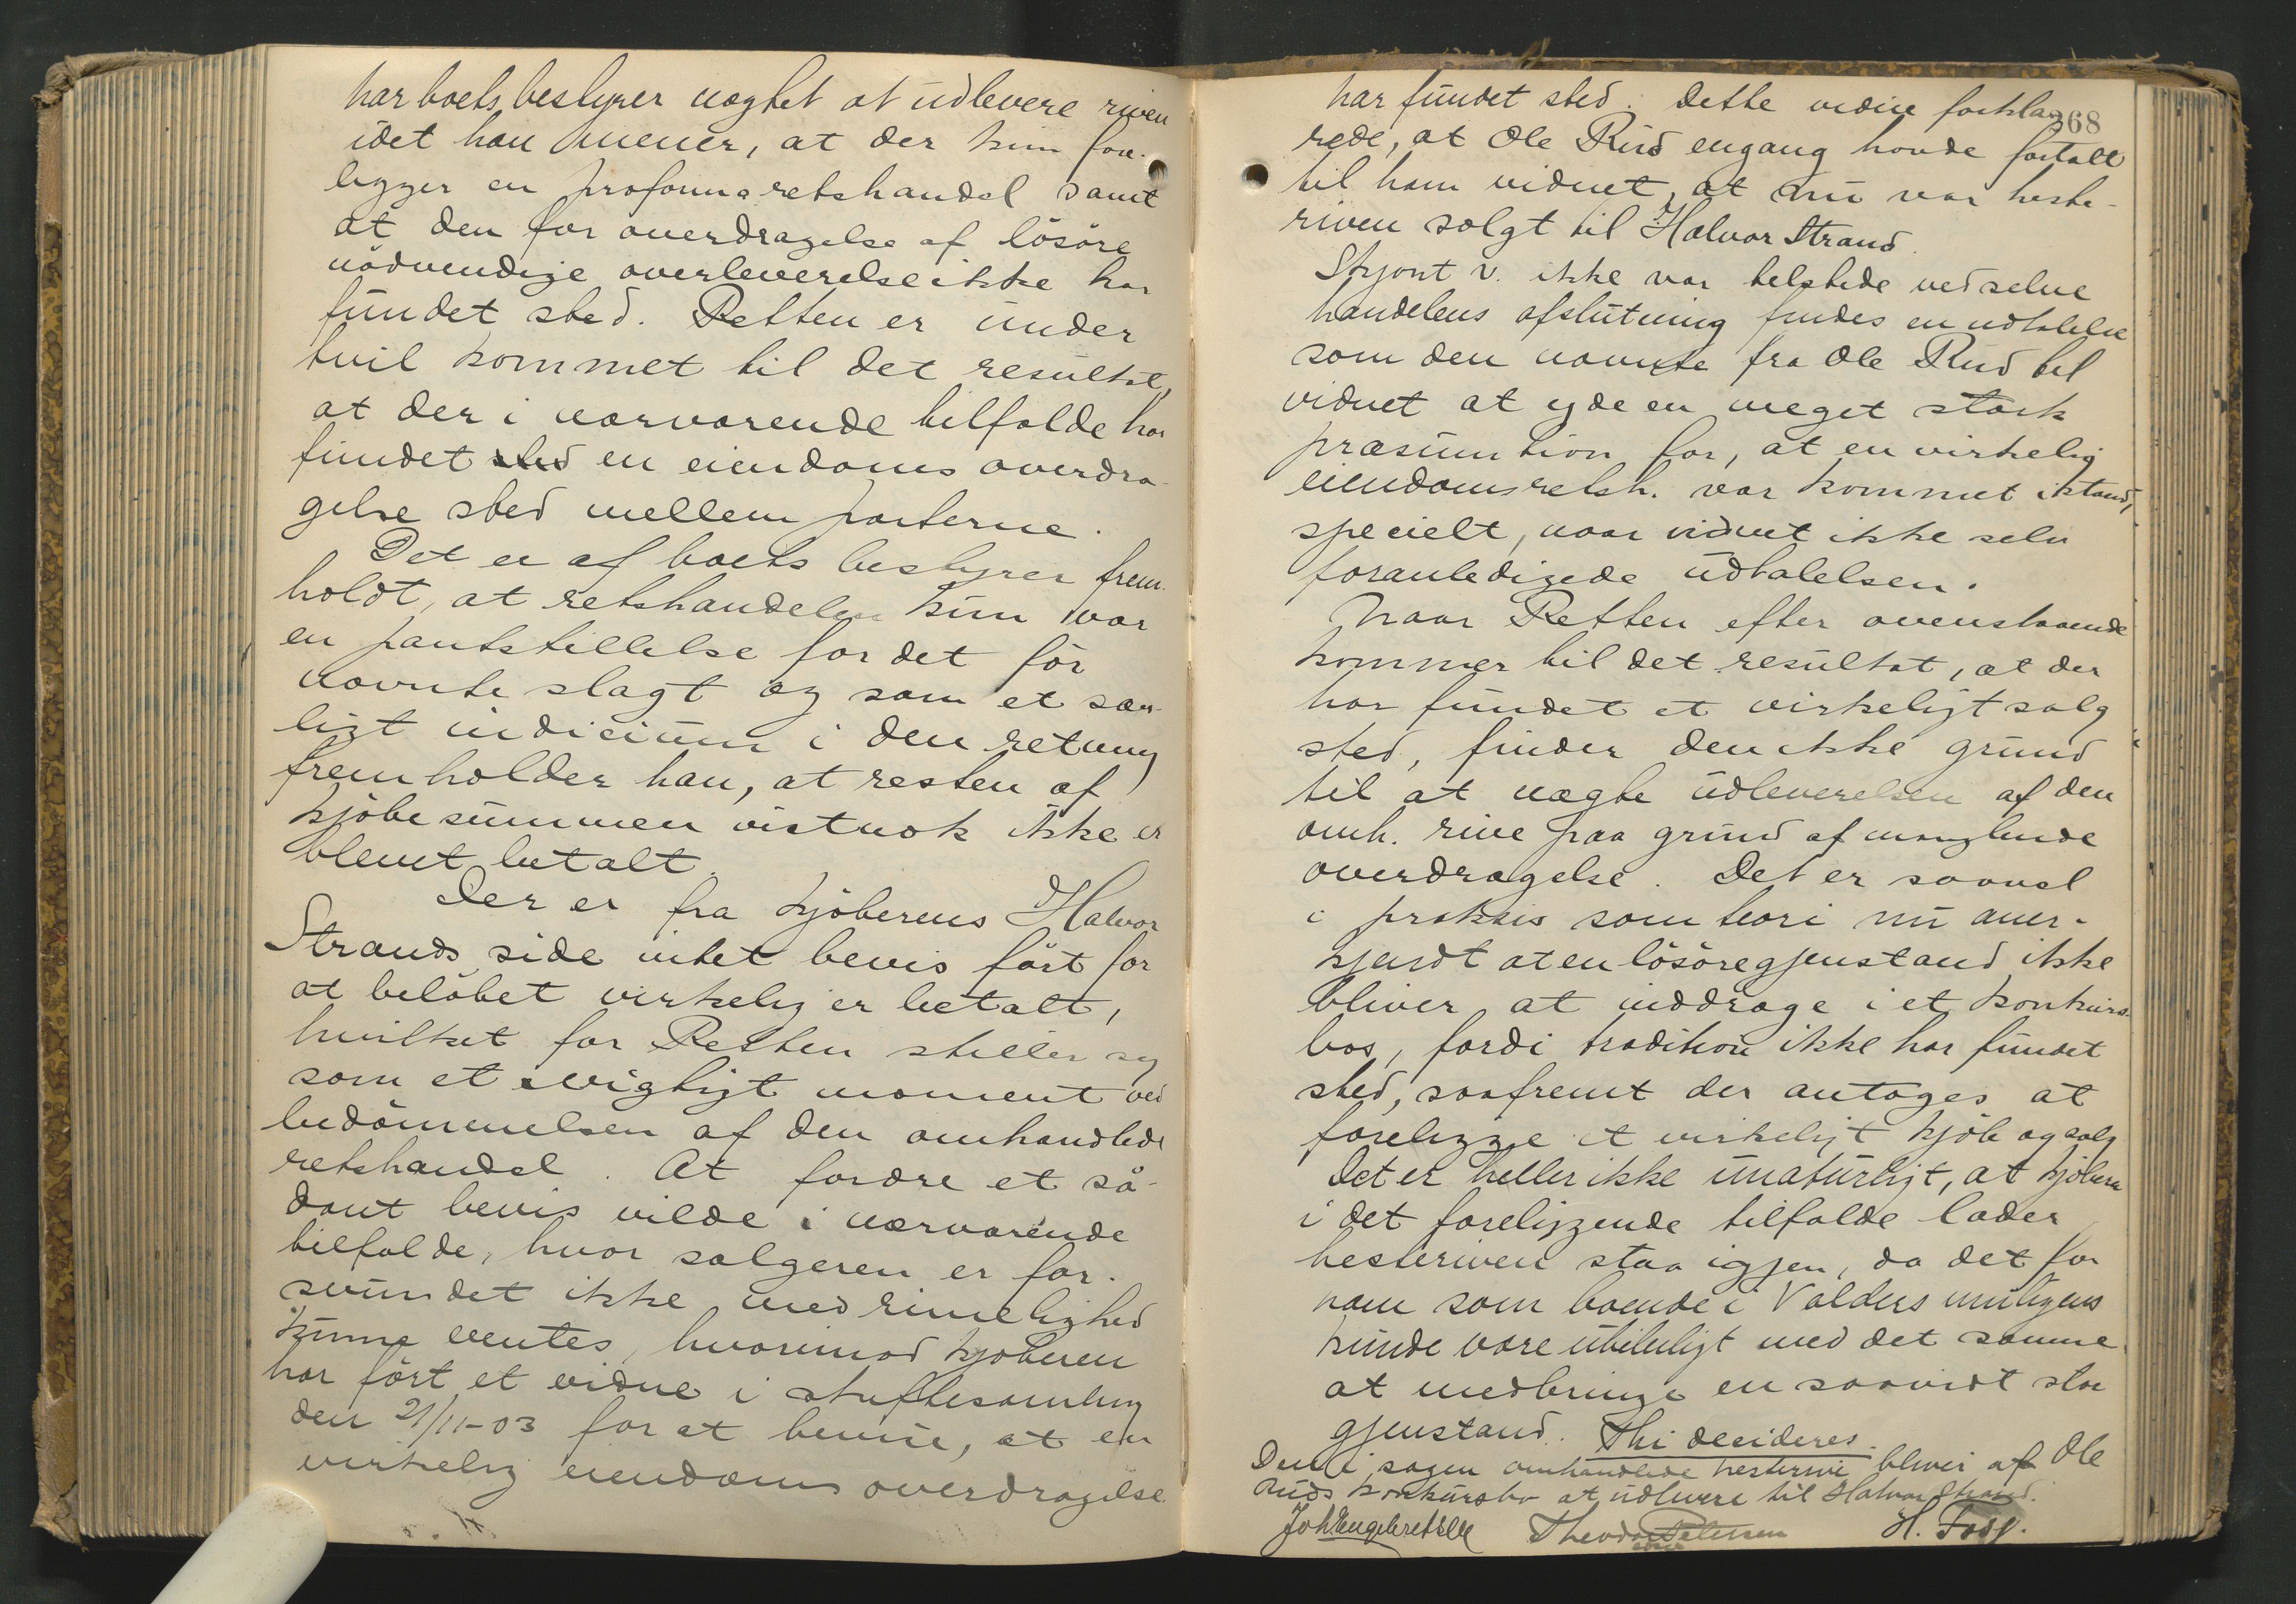 har boets bestyrer nægtet at udlevere riven
idet han mener, at der kun fore-
ligger en proformaretshandel samt
at den for overdragelse af lösöre
nödvendige overleverelse ikke har
fundet sted. Retten er under
tvil kommet til det resultat,
at der i nærværende tilfælde har
fundet sted en eiendoms overdra-
gelse sted mellem parterne.
Det er af boets bestyrer frem-
holdt, at retshandelen kun var
en pantstillelse for det för
nævnte slagt og som et sær-
ligt indicium i den retning
fremholder han, at resten af
kjöbesummen vistnok ikke er
blevet betalt.
Der er fra kjöberens Halvor
Strands side intet bevis fört for
at belöbet virkelig er betalt,
hvilket for Retten stiller sig
som et vigtigt moment ved
bedömmelsen af den omhandlede
retshandel. At fordre et så-
dant bevis vilde i nærværende
tilfælde, hvor sælgeren er for-
svundet ikke med rimelighed
kunne ventes, hvorimod kjöberen
har fört et vidne i skiftesamling
den 21/11-03 for at bevise, at en
virkelig eiendoms overdragelse
368
har fundet sted. Dette vidne forkla-
rede, at Ole Rud engang havde fortalt
til ham vidnet, at nu var heste-
riven solgt til Halvor Strand.
Skjønt v. ikke var tilstede ved selve
handelens afslutning findes en udtalelse
som den nævnte fra Ole Rud til
vidnet at yde en meget stærk
præsumtion for, at en virkelig
eiendomsretsh. var kommet istand,
specielt, naar vidnet ikke selv
foranledigede udtalelsen.
Naar Retten efter ovenstaaende
kommer til det resultat, at der
har fundet et virkeligt salg
sted, finder den ikke grund
til at nægte udleverelsen af den
omh. rive paa grund af manglende
overdragelse. Det er saavel
i praksis som teori nu aner-
kjendt at en lösöregjenstand ikke
bliver at inddrage i et konkurs-
bos, fordi tradition ikke har fundet
sted, saafremt der antages at
foreligge et virkeligt kjöb og salg
Det er heller ikke unaturligt, at kjöberen
i det foreliggende tilfælde lader
hesteriven staa igjen, da det for
ham som boende i Valders muligens
kunde være ubeleiligt med det samme
at medbringe en saavidt stor
gjenstand. Thi decideres.
Den i sagen omhandlede hesterive bliver af Ole
Ruds konkursbo at udlevere til Halvor Strand.
Joh Engebretsen Theodor Petersen H. Foss.